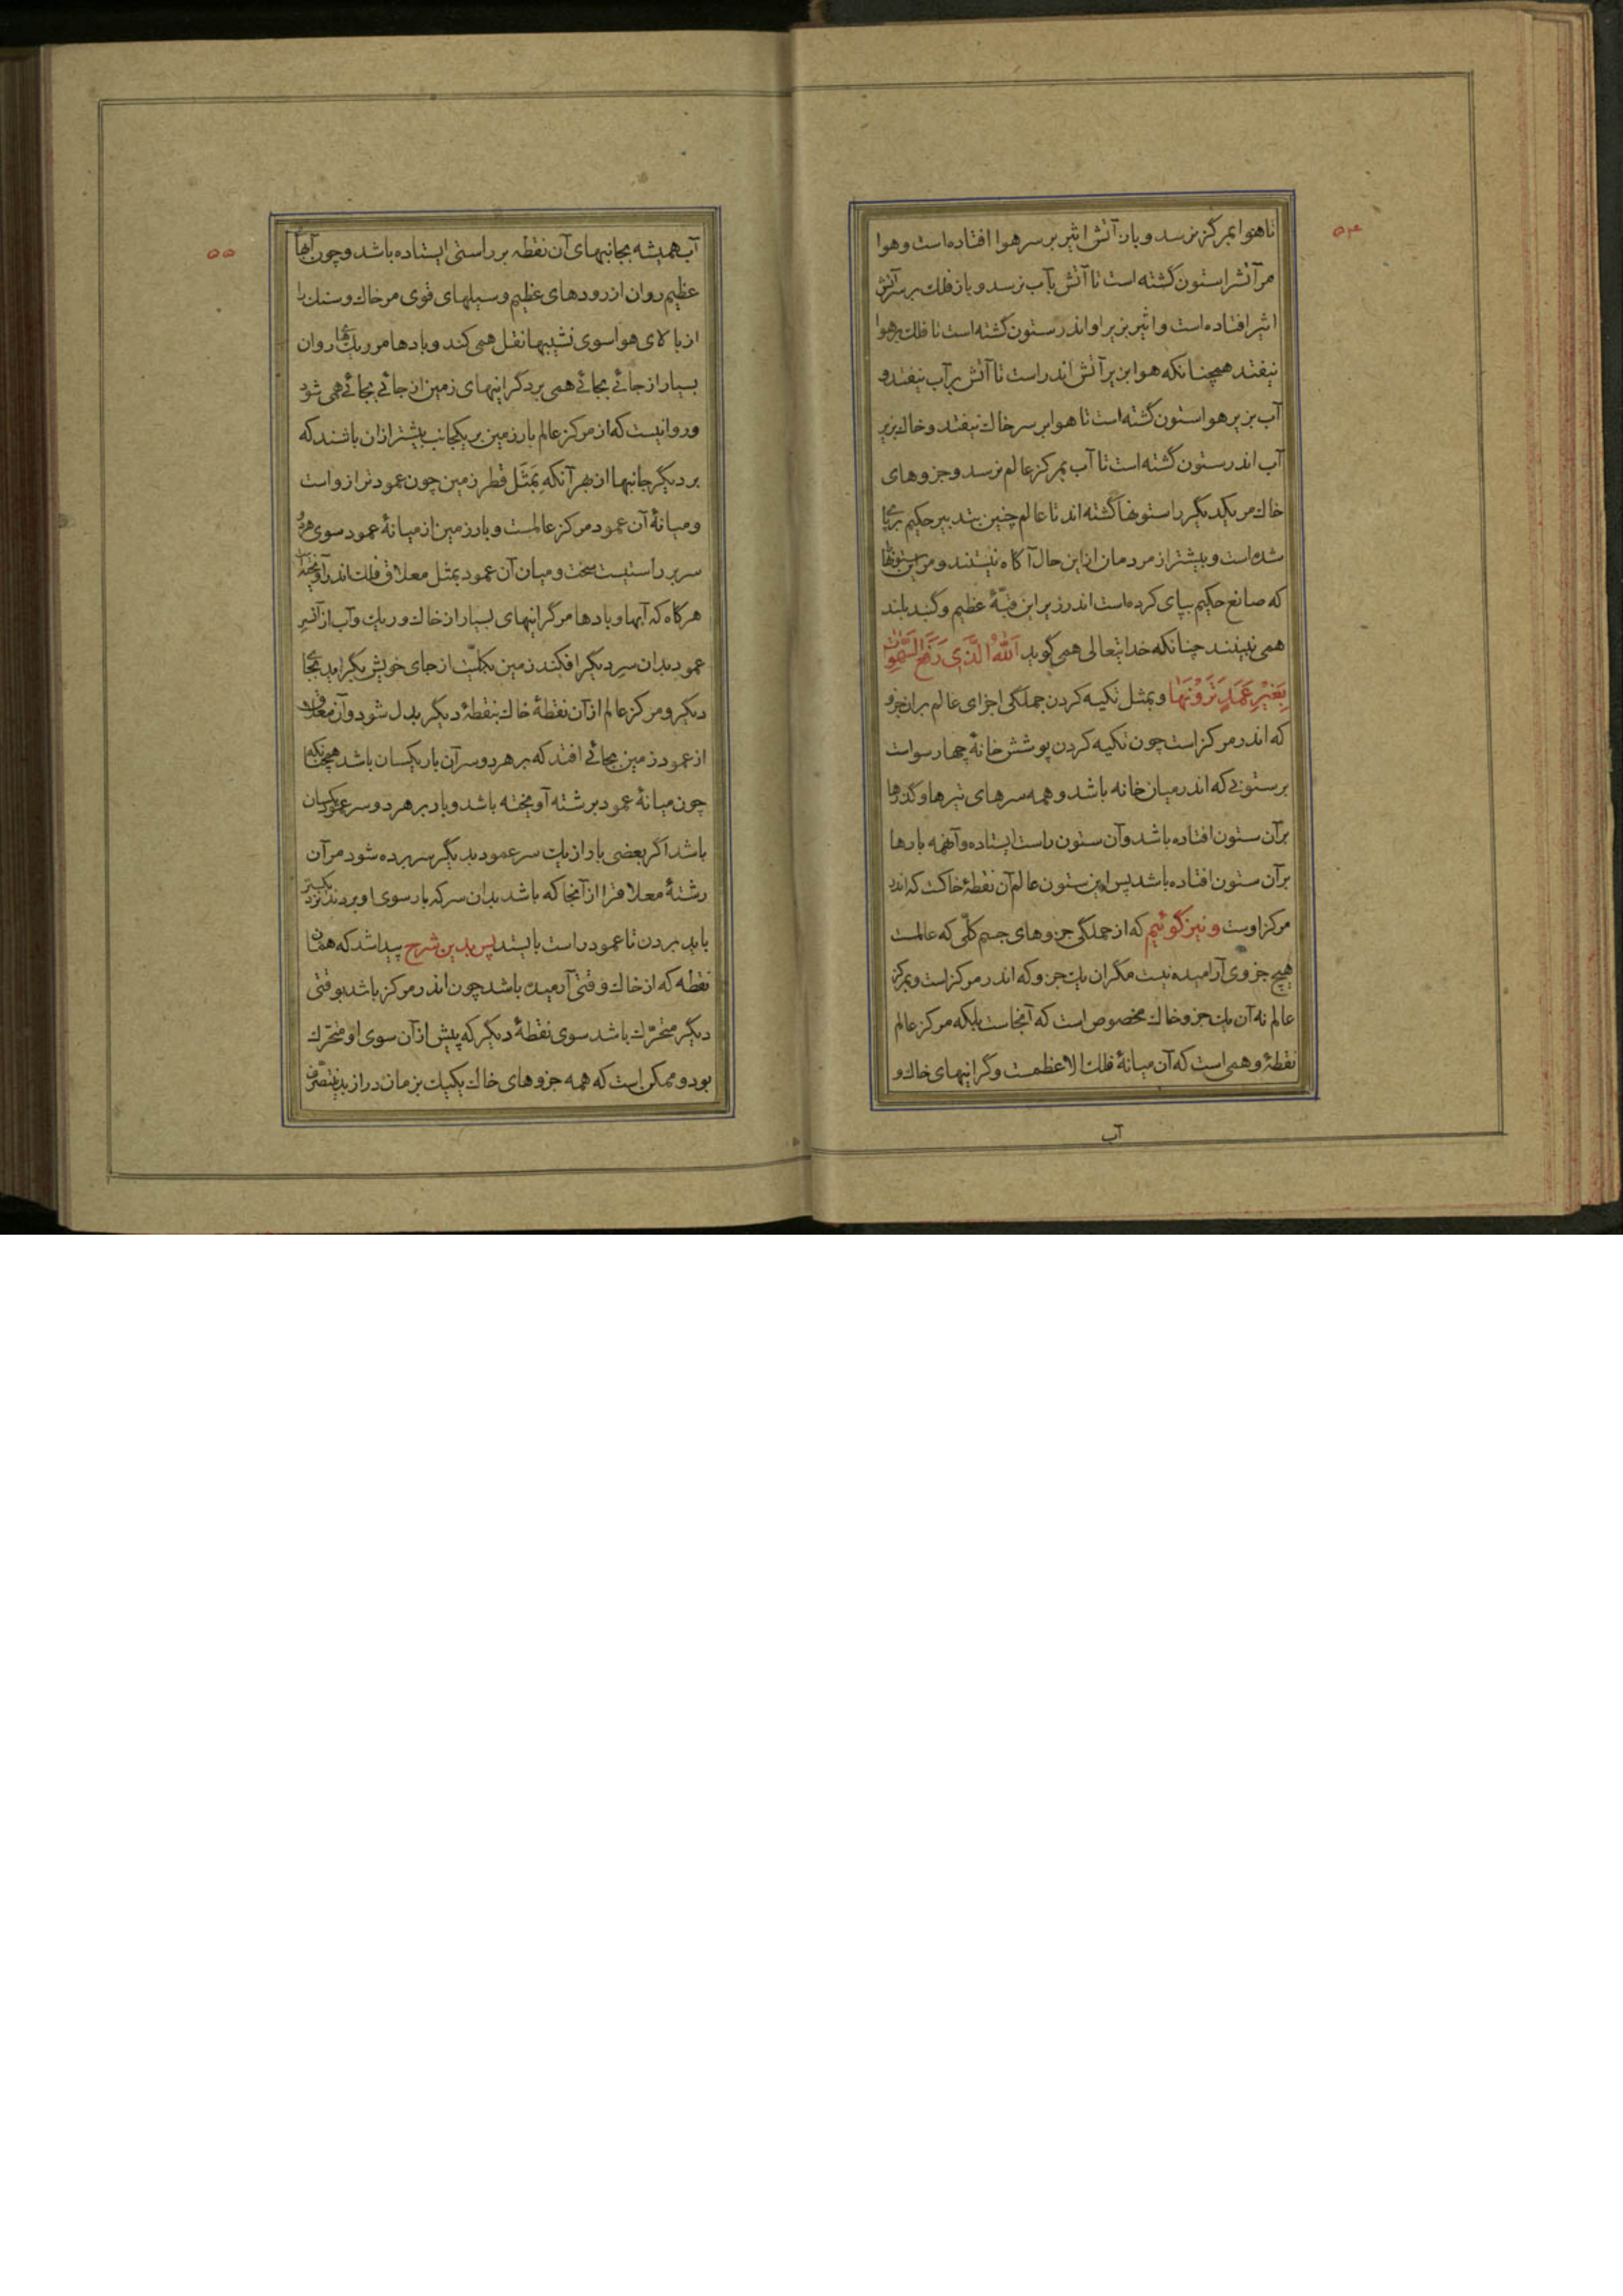 ۵۴
تا هوا بمرکز نرسد و باز آتش اثیر بر سر هوا افتاده است و هوا
مر آتش را ستون گشته است تا آتش بآب نرسد و باز فلک بر سر آتش
اثیر افتاده است و اثیر بزیر او اندر ستون گشته است تا فلک بر هوا
نیفتد همچنانکه هوا بزیر آتش اندر است تا آتش بر آب نیفتد و
آب بزیر هوا ستون گشته است تا هوا بر سر خاک نیفتد و خاک بزیر
آب اندر ستون گشته است تا آب بمرکز عالم نرسد و جزوهای
خاک مر یکدیگر را ستونها گشته اند تا عالم چنین بتدبیر حکیم بر پای
شده است و بیشتر از مردمان ازین حال آگاه نیستند و مر این ستونها
که صانع حکیم بپای کرده است اندر زیر این قبّهٔ عظیم و گنبد بلند
همی نبینند چنانکه خدایتعالی همی گوید اَللّٰهُ الَّذِی رَفَعَ السَّمٰوٰتِ
بِغَیْرِ عَمَدٍ تَرَوْنَهٰا و بمثل تکیه کردن جملگی اجزای عالم بران جزو
که اندر مرکز است چون تکیه کردن پوشش خانهٔ چهار سو است
بر ستونی که اندر میان خانه باشد و همه سرهای تیرها و گذرها
بر آن ستون افتاده باشد و آن ستون راست ایستاده و آنهمه بارها
بر آن ستون افتاده باشد پس این ستون عالم آن نقطهٔ خاکست که اندر
مرکز اوست و نیز گوئیم که از جملگی جزوهای جسم کلّی که عالمست
هیچ جزوی آرامیده نیست مگر ان یک جزو که اندر مرکز است و مرکز
عالم نه آن یک جزو خاک مخصوص است که آنجاست بلکه مرکز عالم
نقطهٔ وهمی است که آن میانهٔ فلک الاعظمست و گرانیهای خاک و
آب
۵۵
آب همیشه بجانبهای آن نقطه بر راستی ایستاده باشد و چون آبها
عظیم روان از رودهای عظیم و سیلهای قوی مر خاک و سنگ را
از بالای هوا سوی نشیبها نقل همی کند و بادها مر ریگهای روان
بسیار از جائے بجائے همی برد گرانیهای زمین از جائے بجائے همی شود
و روا نیست که از مرکز عالم بار زمین بر یکجانب بیشتر ازان باشد که
بر دیگر جانبها از بهر آنکه بمَثَل قطر زمین چون عمود ترازو است
و میانهٔ آن عمود مرکز عالمست و بار زمین از میانهٔ عمود سوی هر دو
سر بر راستیست سخت و میان آن عمود بمثل معلاق فلک اندر آویخته است
هرگاه که آبها و بادها مر گرانیهای بسیار از خاک و ریگ و آب از آنسر
عمود بدان سر دیگر افکند زمین بکلّیّت از جای خویش بگراید بجای
دیگر و مرکز عالم از آن نقطهٔ خاک بنقطهٔ دیگر بدل شود و آن معلاق
از عمود زمین بجائے افتد که بر هر دو سر آن بار یکسان باشد همچنانکه
چون میانهٔ عمود بر شته آویخته باشد و بار بر هر دو سر عمود یکسان
باشد اگر بعضی بار از یک سر عمود بدیگر سر برده شود مر آن
رشتهٔ معلاق را از آنجا که باشد بدان سر که بار سوی او بردند نزدیکتر
باید بردن تا عمود راست بایستد پس بدین شرح پیدا شد که همان
نقطه که از خاک وقتی آرمیده باشد چون اندر مرکز باشد بوقتی
دیگر متحرّک باشد سوی نقطهٔ دیگر که پیش از آن سوی او متحرّک
بود و ممکن است که همه جزوهای خاک یکیک بزمان دراز بدین تصرّف